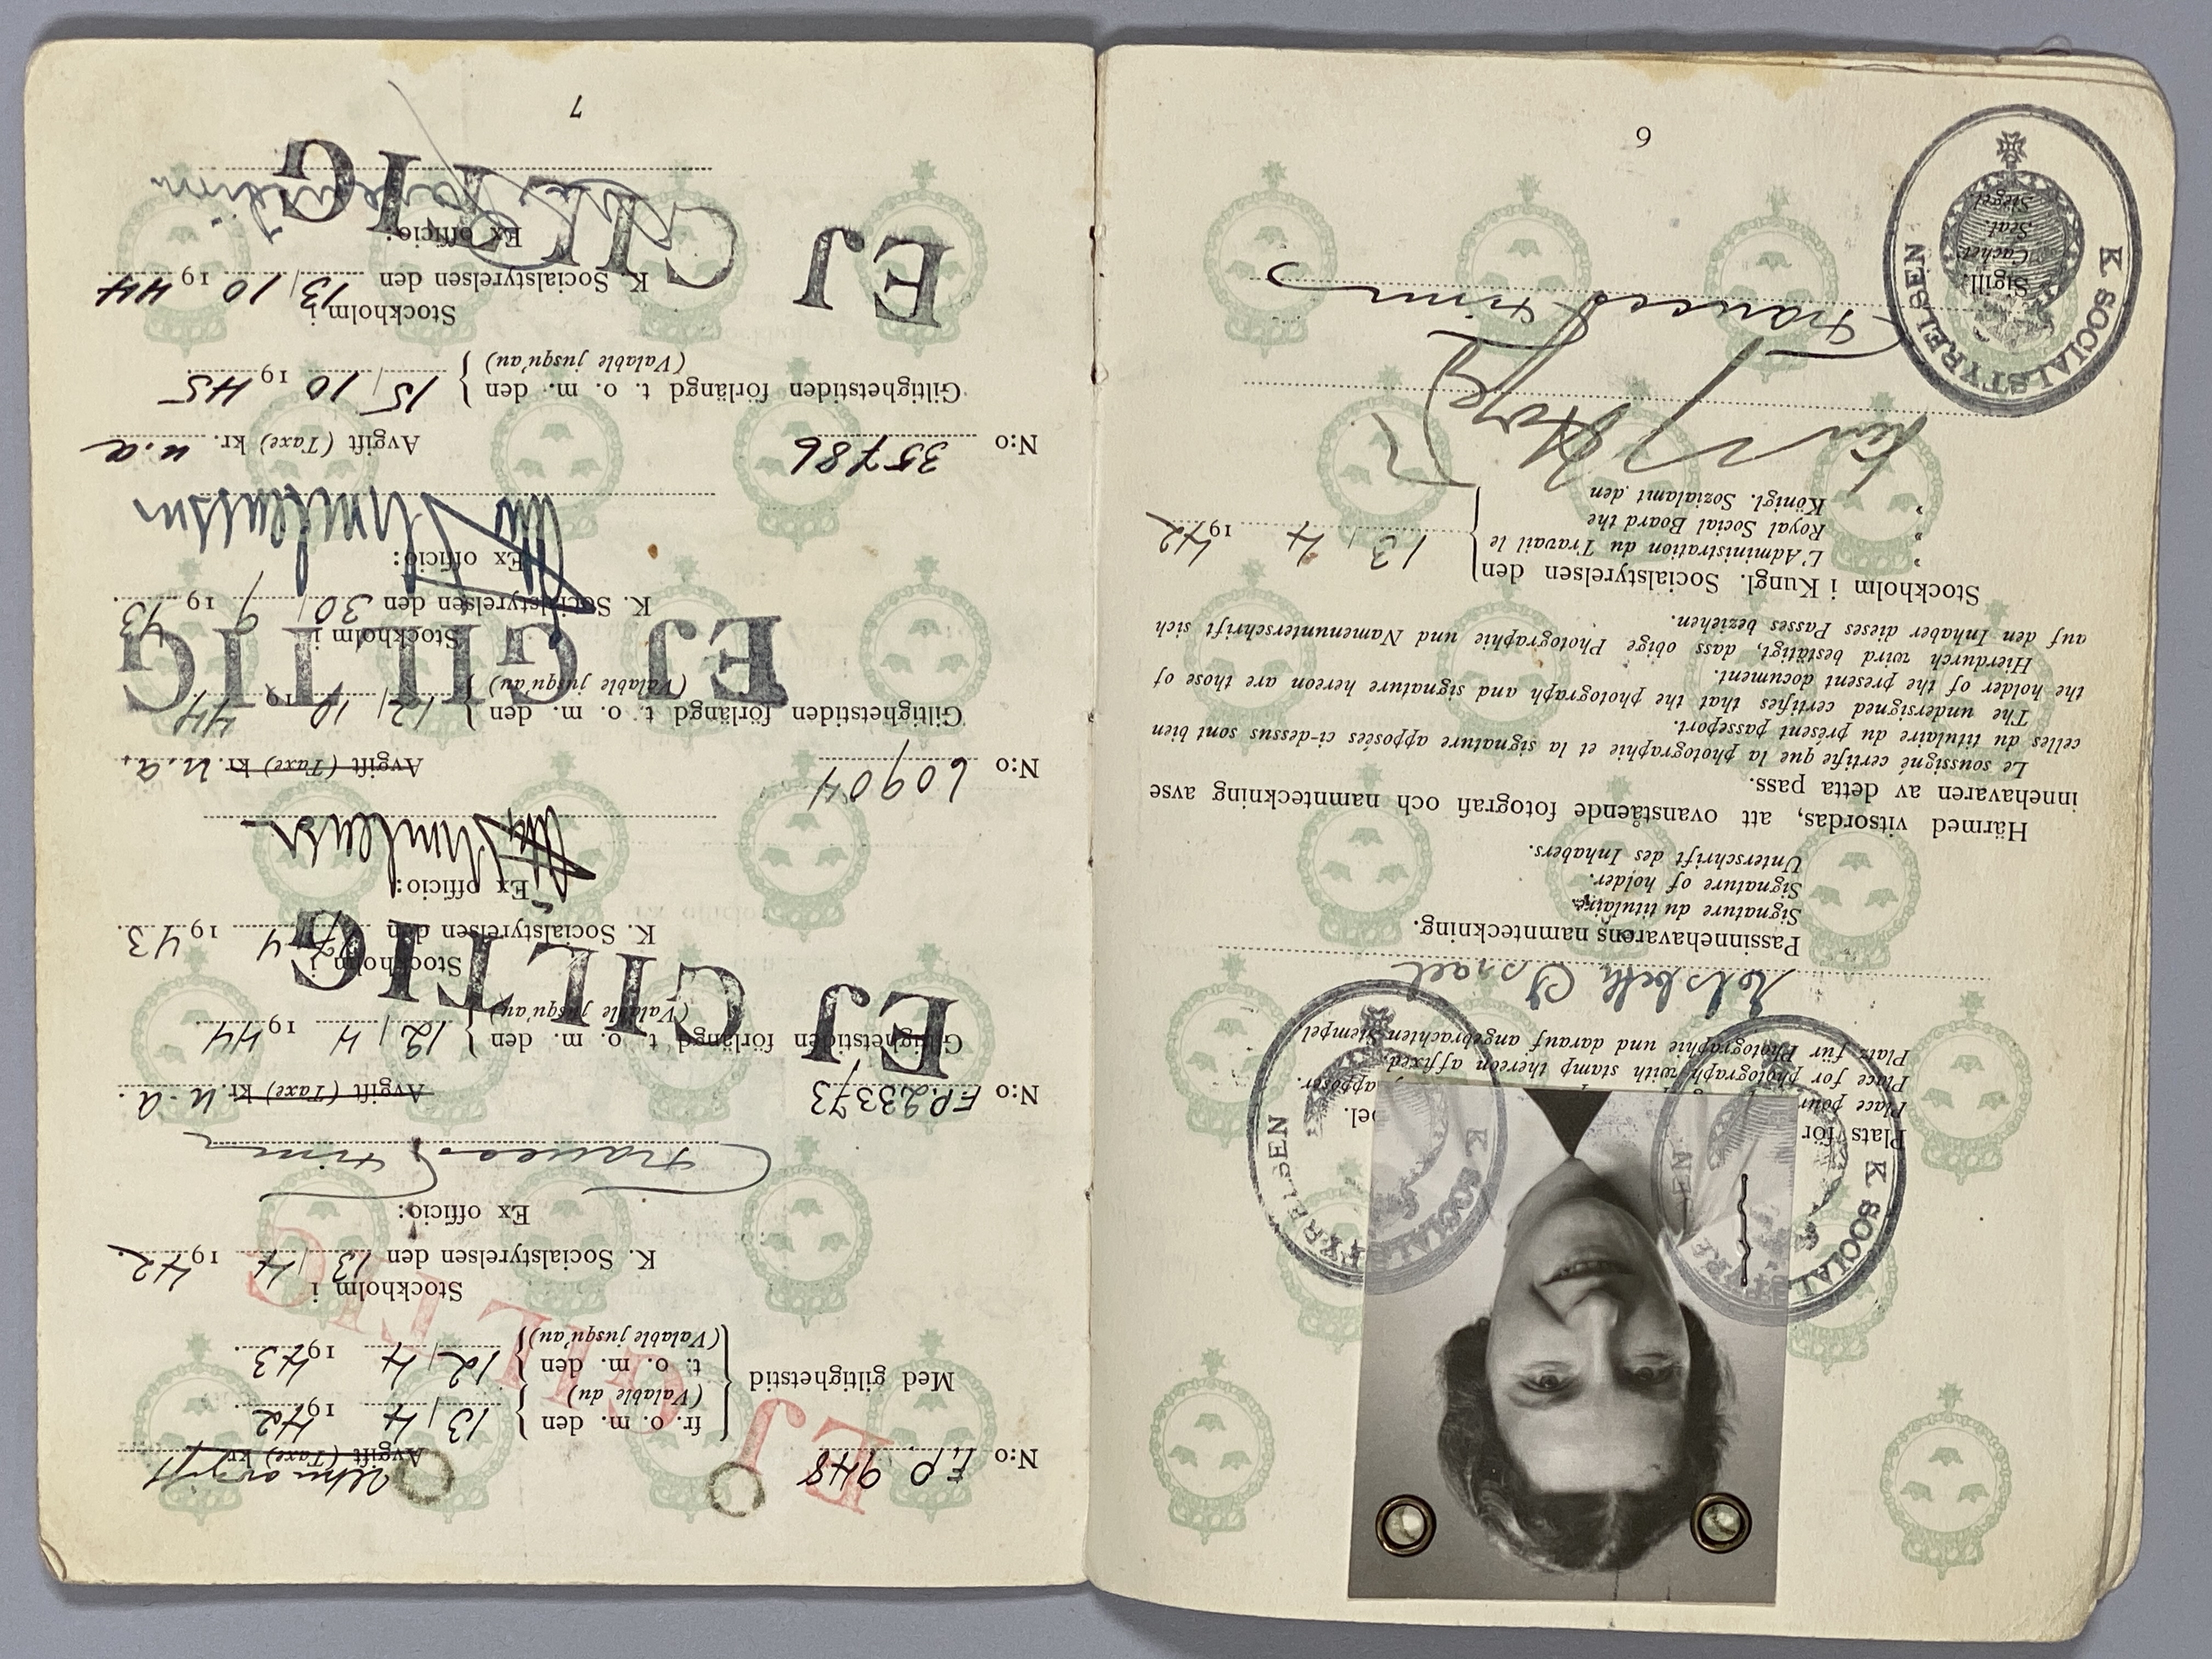 Plats för
Place pour apposer.
Place for photograph with stamp thereon affixed.
Platz für Photographie und darauf angebrachten Stempel
K SOCIALSTYRELSEN
K SOCIALSTYRELSEN
Israel
Passinnehavarens namnteckning.
Signature du titulaire.
Signature of holder.
Unterschrift des Inhabers.
Härmed vitsordas, att ovanstående fotografi och namnteckning avse
innehavaren av detta pass.
Le soussigné certifie que la photographie et la signature apposées ci-dessus sont bien
celles du titulaire du présent passeport.
The undersigned certifies that the photograph and signature hereon are those of
the holder of the present document.
Hierdurch wird bestätigt, dass obige Photographie und Namenunterschrift sich
auf den Inhaber dieses Passes beziehen.
Stockholm i Kungl. Socialstyrelsen den
" L'Administration du Travail le
" Royal Social Board the
" Königl. Sozialamt den
13/4 1942
Sigill.
Cachet.
Seal.
Siegel.
K SOCIALSTYRELSEN
6
N:o F.P. 948 Avgift (Taxe) kr. utan avgift
Med giltighetstid { fr. o. m. den (Valable du) } 13/4 1942
t. o. m. den (Valable jusqu'au) } 12/4 1943.
EJ GILTIG
Stockholm i
K. Socialstyrelsen den 13/4 1942.
Ex officio:
N:o F.P. 23373 Avgift (Taxe) kr. u.a.
Giltighetstiden förlängd t. o. m. den (Valable jusqu'au) } 12/4 1944.
EJ GILTIG
Stockholm i
K. Socialstyrelsen den 4 1943.
Ex officio:
N:o 60904 Avgift (Taxe) kr. u.a.
Giltighetstiden förlängd t. o. m. den (Valable jusqu'au) } 12/10 1944
EJ GILTIG
Stockholm i
K. Socialstyrelsen den 30/9 1943.
Ex officio:
N:o 35786 Avgift (Taxe) kr. u.a
Giltighetstiden förlängd t. o. m. den (Valable jusqu'au) } 15/10 1945.
Stockholm i
K. Socialstyrelsen den 13/10 1944
EJ GILTIG
Ex officio:
7